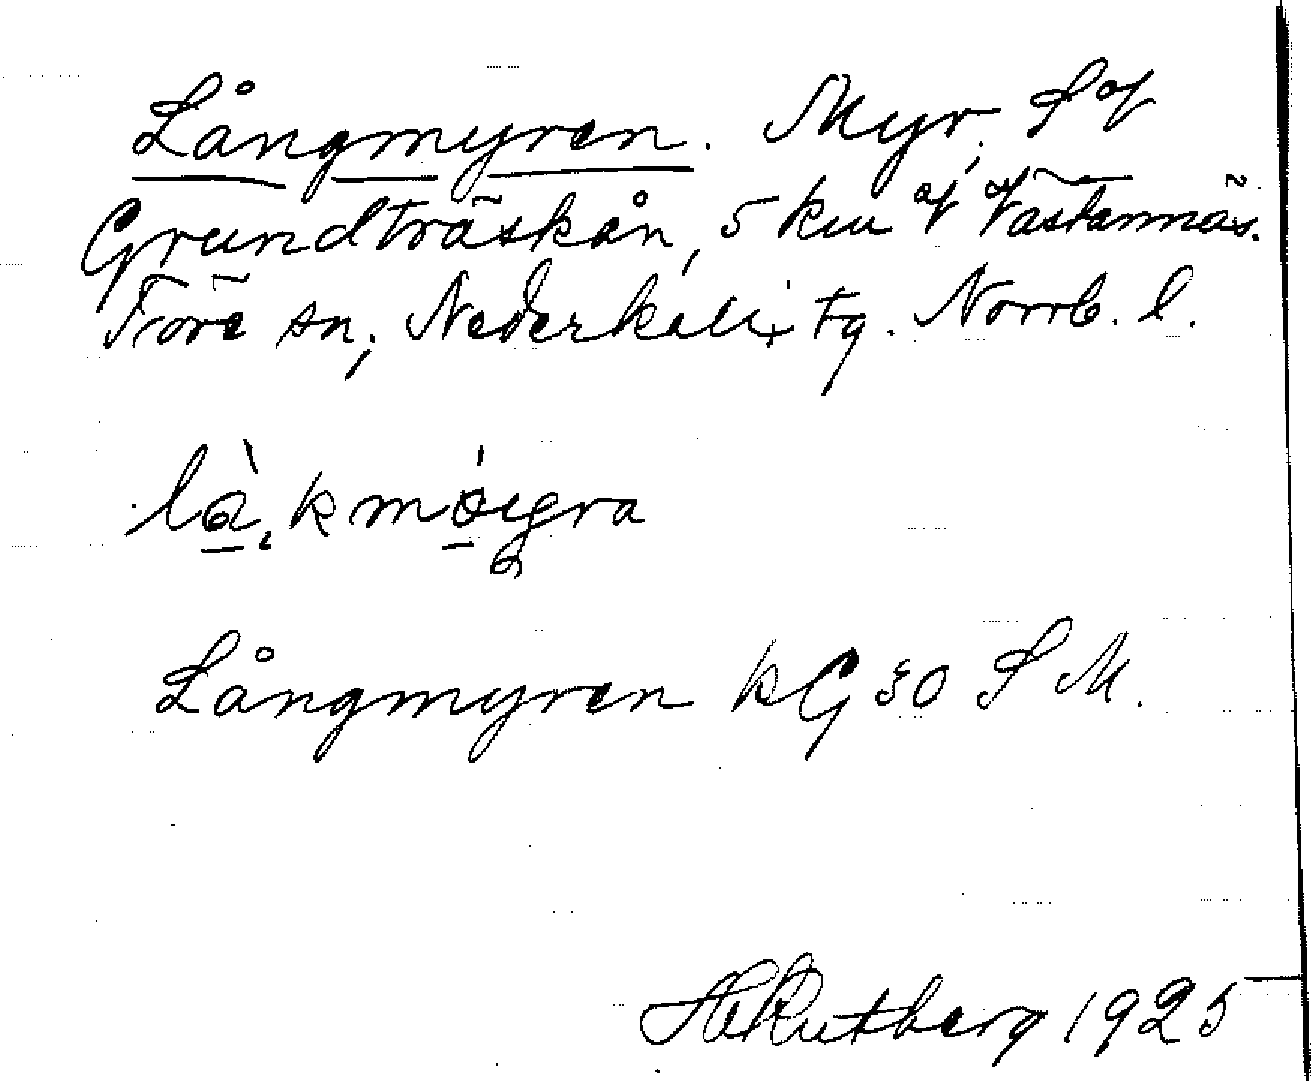 Långmyren. Myr, S of
Grundträskån, 5 km of Västannäs.
Töre sn, Nederkalix tg. Norrb. l.
Långmyren kG 30 S M.
H Rutberg 1925